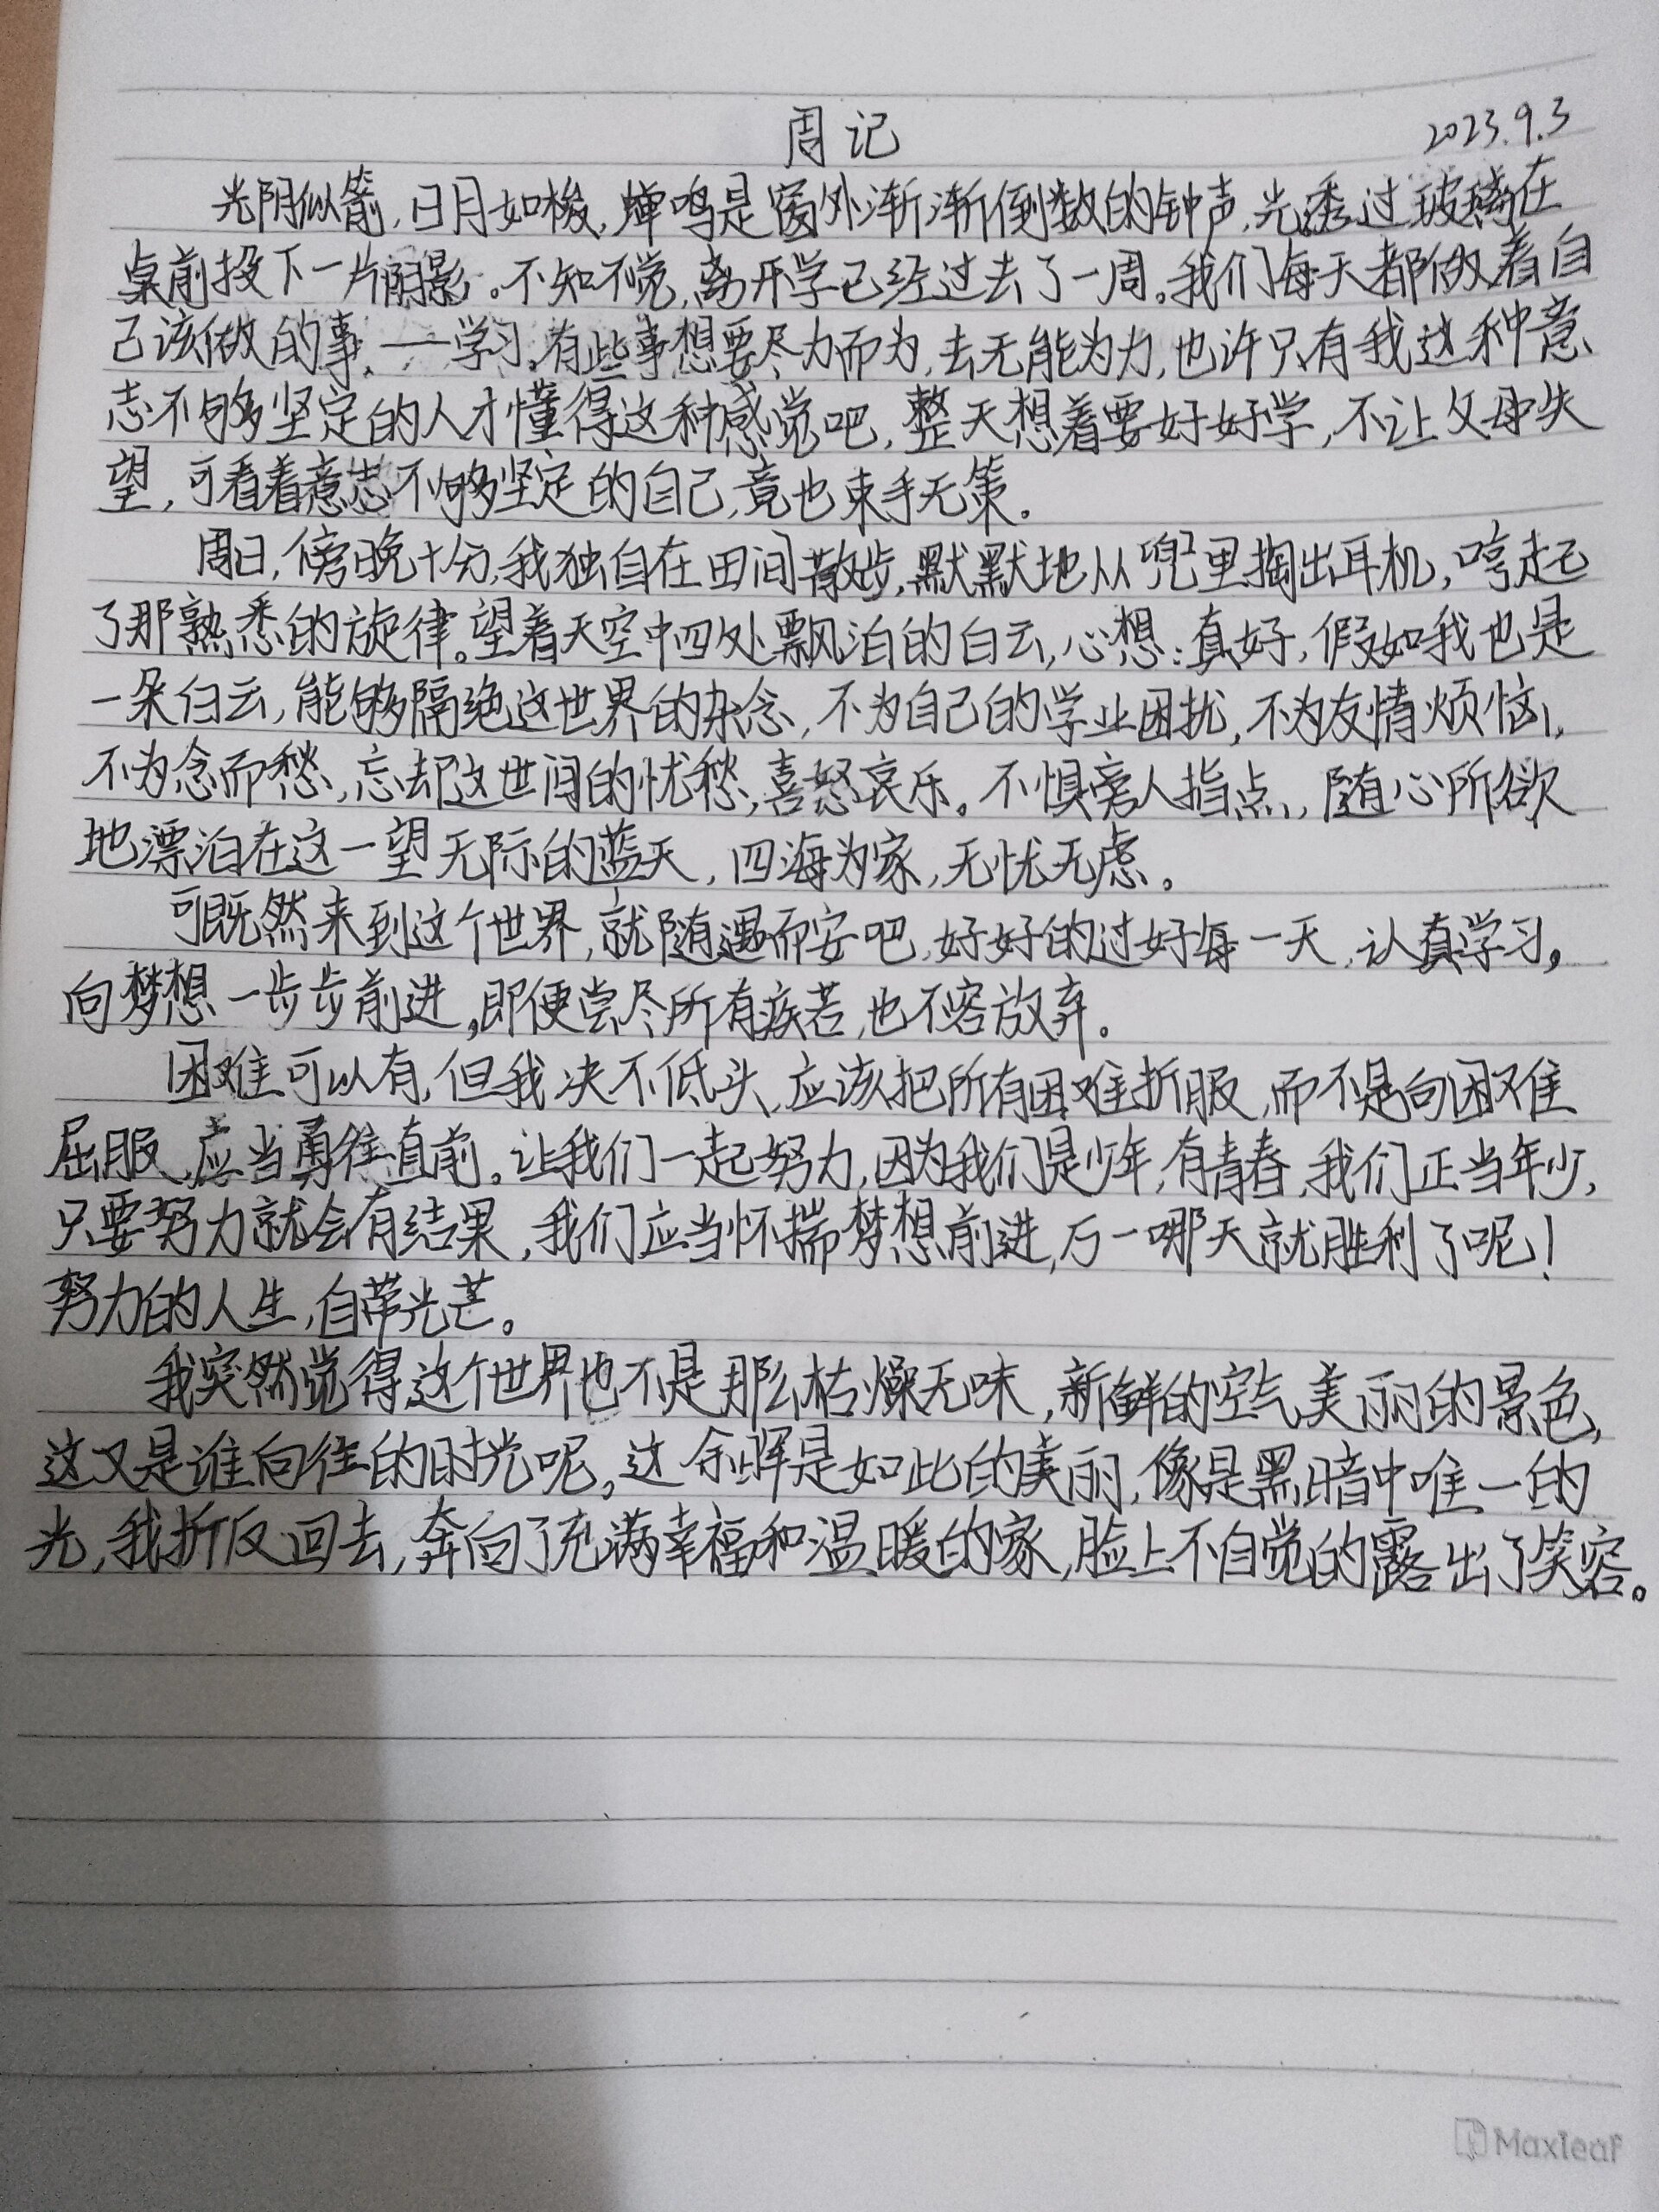 周记
2023.9.3
光阴似箭,日月如梭,蝉鸣是窗外渐渐倒数的钟声,光透过玻璃在
桌前投下一片阴影。不知不觉,离开学已经过去了一周。我们每天都做着自
己该做的事,——学习。有些事想要尽力而为,去无能为力,也许只有我这种意
志不够坚定的人才懂得这种感觉吧,整天想着要好好学,不让父母失
望,可看着意志不够坚定的自己,竟也束手无策。
周日,傍晚十分,我独自在田间散步,默默地从兜里掏出耳机,哼起
了那熟悉的旋律。望着天空中四处飘泊的白云,心想:真好,假如我也是
一朵白云,能够隔绝这世界的杂念,不为自己的学业困扰,不为友情烦恼,
不为念而愁,忘却这世间的忧愁,喜怒哀乐。不惧旁人指点,随心所欲
地漂泊在这一望无际的蓝天,四海为家,无忧无虑。
可既然来到这个世界,就随遇而安吧,好好的过好每一天,认真学习,
向梦想一步步前进,即便尝尽所有疾苦,也不容放弃。
困难可以有,但我决不低头,应该把所有困难折服,而不是向困难
屈服,应当勇往直前。让我们一起努力,因为我们是少年,有青春,我们正当年少,
只要努力就会有结果,我们应当怀揣梦想前进,万一哪天就胜利了呢!
努力的人生,自带光芒。
我突然觉得这个世界也不是那么枯燥无味,新鲜的空气,美丽的景色,
这又是谁向往的时光呢。这余晖是如此的美丽,像是黑暗中唯一的
光,我折反回去,奔向了充满幸福和温暖的家,脸上不自觉的露出了笑容。
Maxleaf